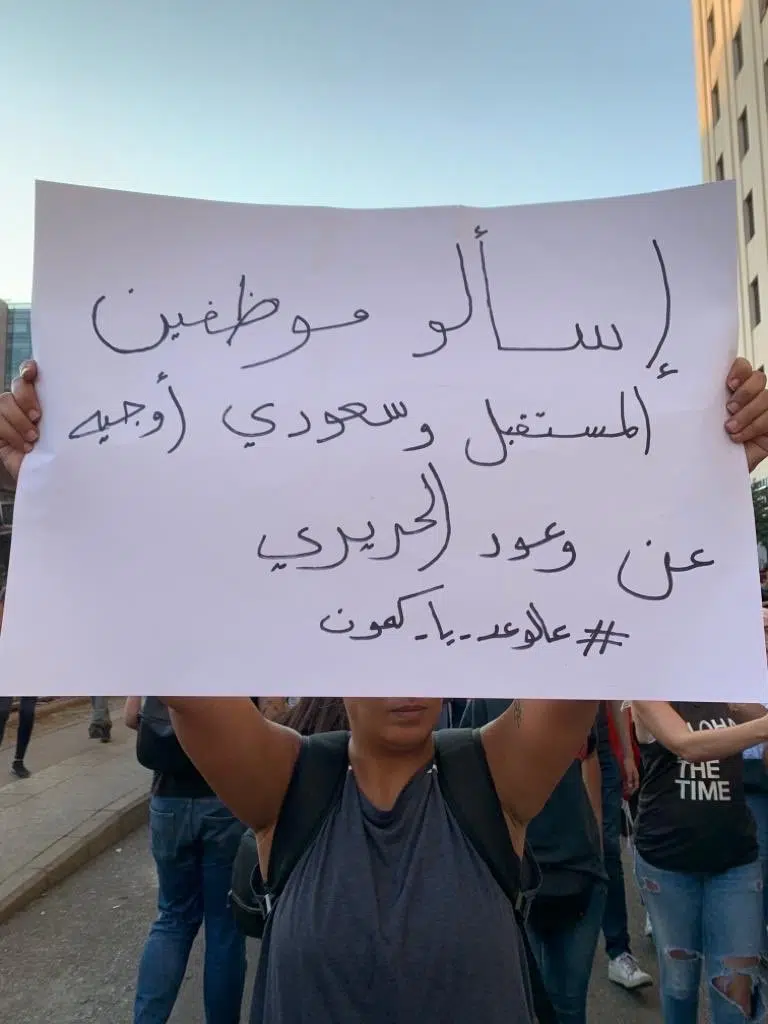 إسألو موظفين
المستقبل وسعودي أوجيه
عن وعود الحريري
#عالوعد_يا_كمون
LOHA
THE
TIME